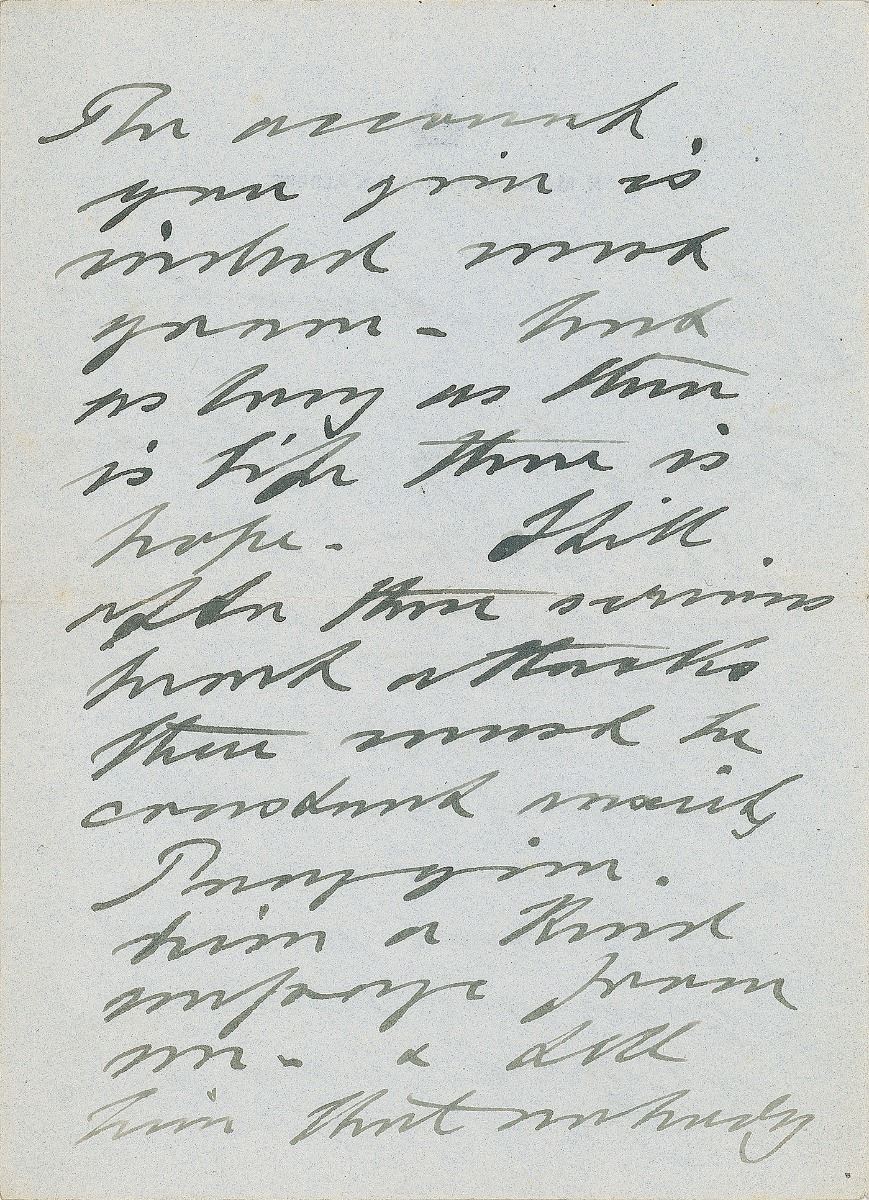 The account
you give is
indeed most
grave – but
as long as there
is life there is
hope. Still
after three serious
heart attacks
there must be
constant anxiety
Pray give
him a kind
message from
me – & tell
him that nobody